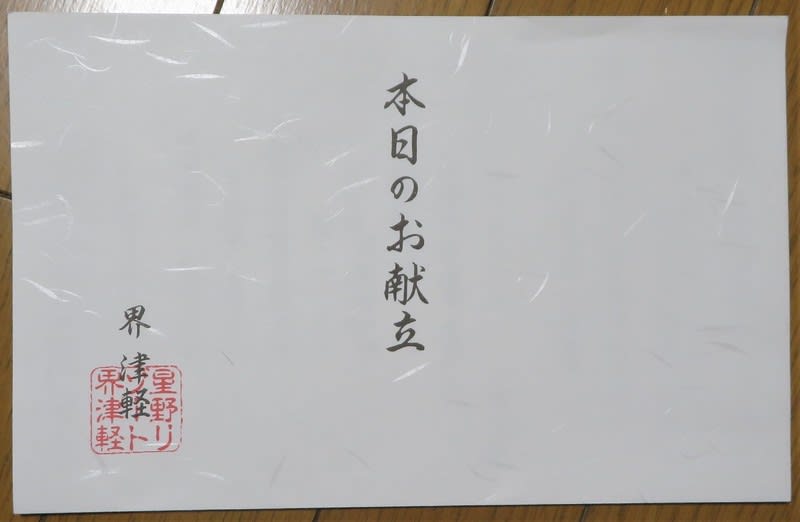 本日のお献立
界 津軽
星野リ
ゾート
界津軽